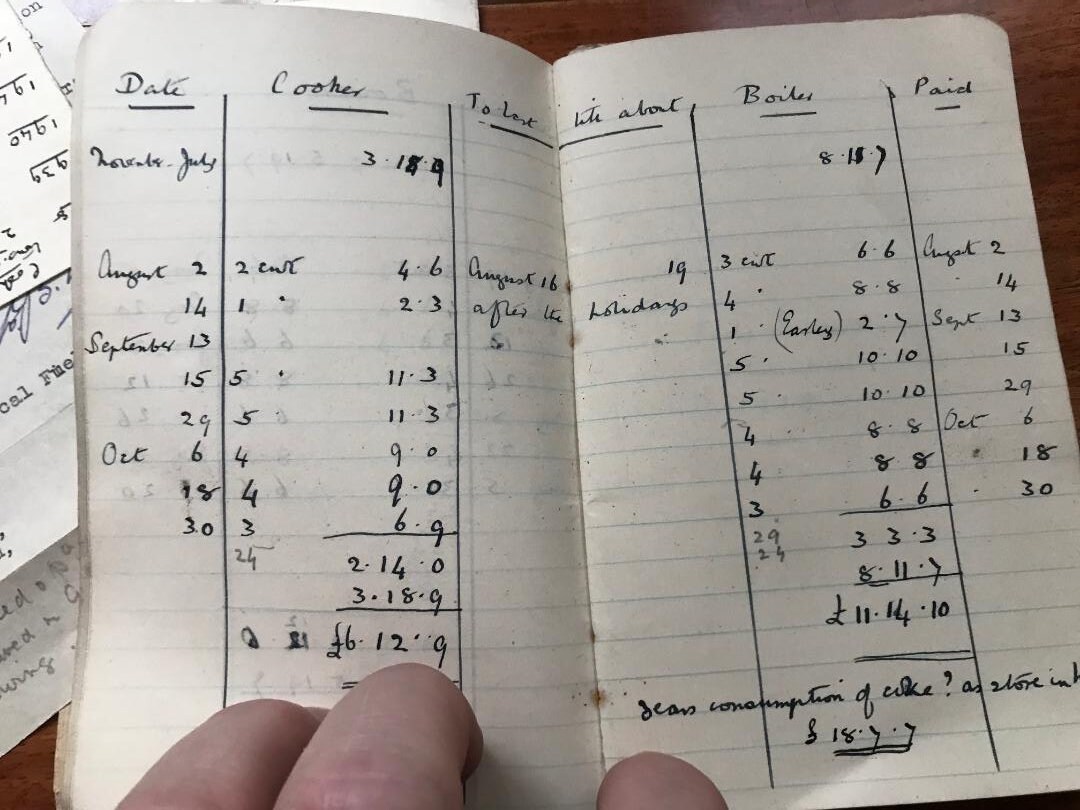 Date Cooker To Last
November-July 3.18.9
August 2 2 cwt 4.6 August 16
14 1 " 2.3 after the
September 13
15 5 " 11.3
29 5 11.3
Oct 6 4 9.0
18 4 9.0
30 3 6.9
24 2.14.0
3.18.9
£6.12.9
till about Boiler Paid
8.11.7
19 3 cwt 6.6 August 2
holidays 4 " 8.8 " 14
1 " (Easley) 2.7 Sept 13
5 " 10.10 15
5 " 10.10 29
4 " 8.8 Oct 6
4 8 8 18
3 6.6 " 30
29 3 3.3
24 8.11.7
£11.14.10
years consumption of coke? as store in
£18.7.7
on
194
1940
1939
cal Fuel